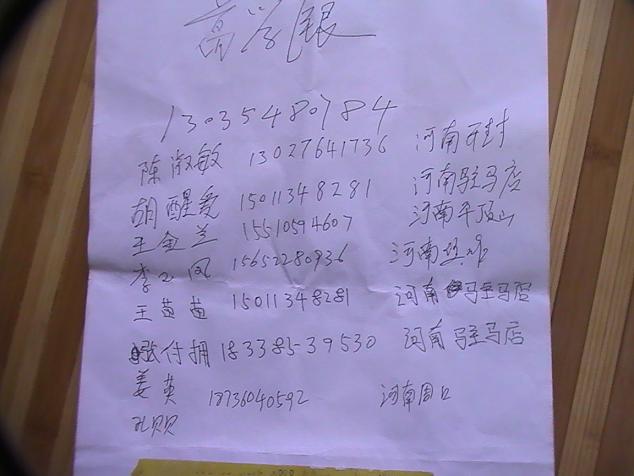 高学银
13035480784
陈淑敏 13027641736 河南开封
胡醒爱 15011348281 河南驻马店
王金兰 15510594607 河南平顶山
李小凤 15652280936 河南
王苗苗 15011348281 河南驻马店
张付拥 18338539530 河南驻马店
姜英 18736040592 河南周口
孔贝贝